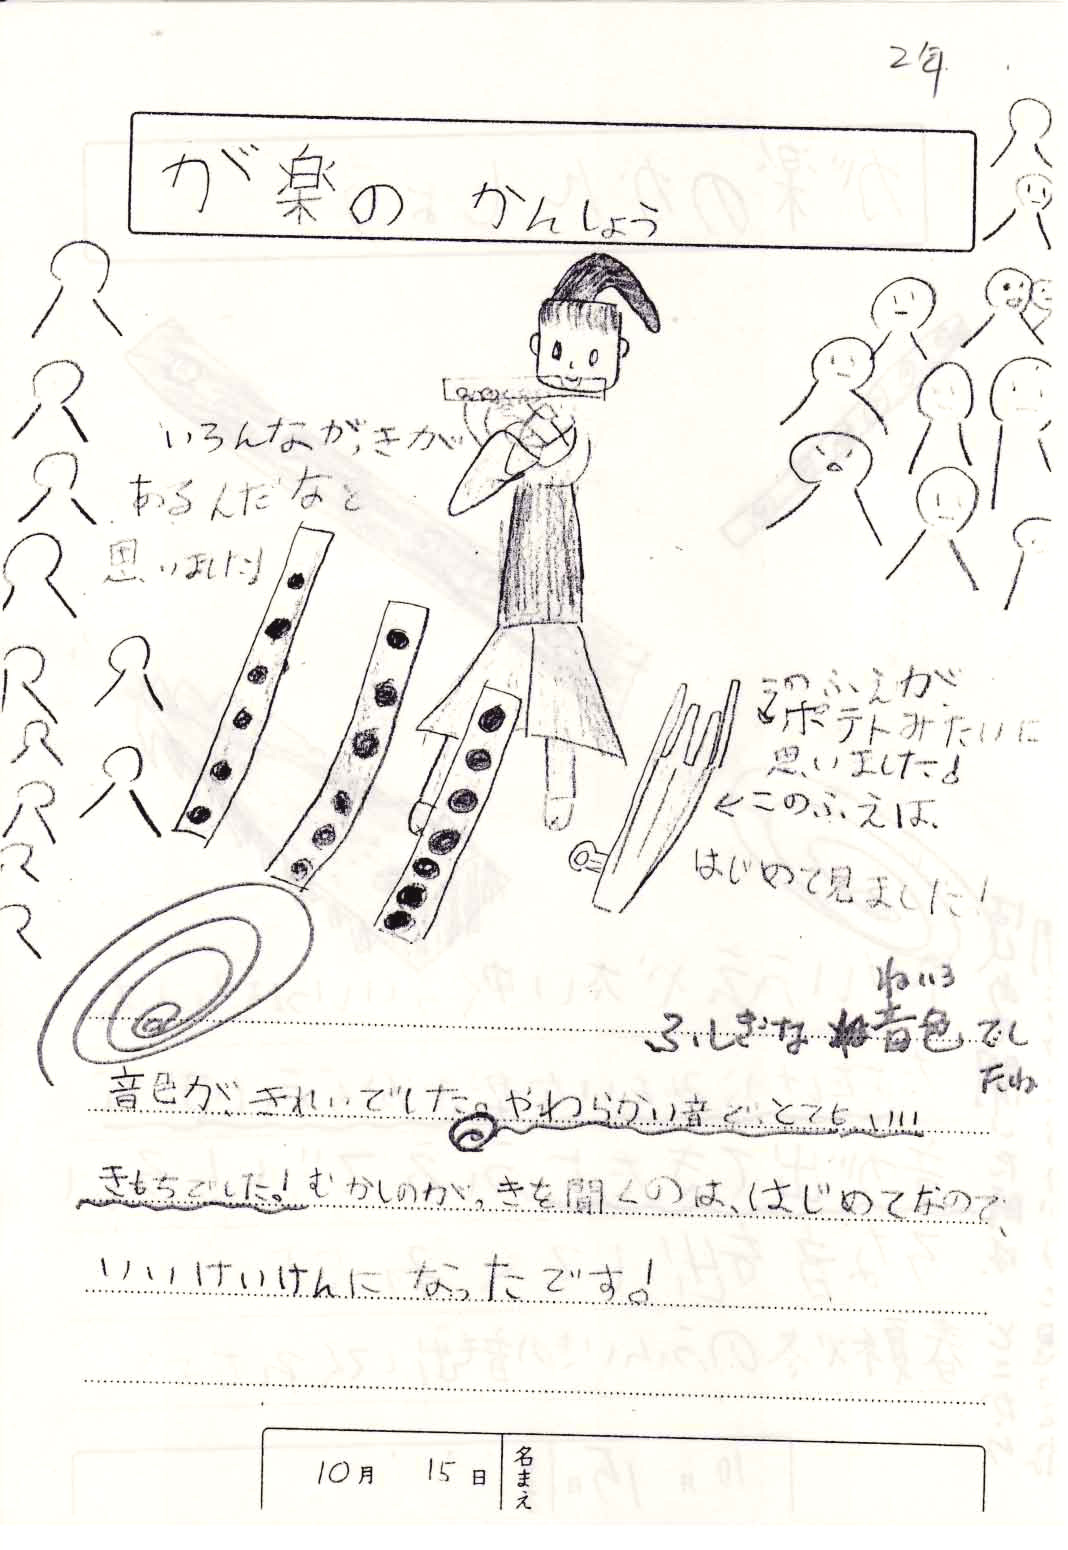 2年
が楽の かんしょう
いろんながっきが
あるんだなと
思いました!
このふえが、
ポテトみたいに
思いました!
←このふえは、
はじめて見ました!
ねいろ
ふしぎな音色でし
たね
音色が、きれいでした。やわらかい音で、とてもいい
きもちでした!むかしのがっきを聞くのは、はじめてなので、
いいけいけんになったです!
10月 15日 名まえ